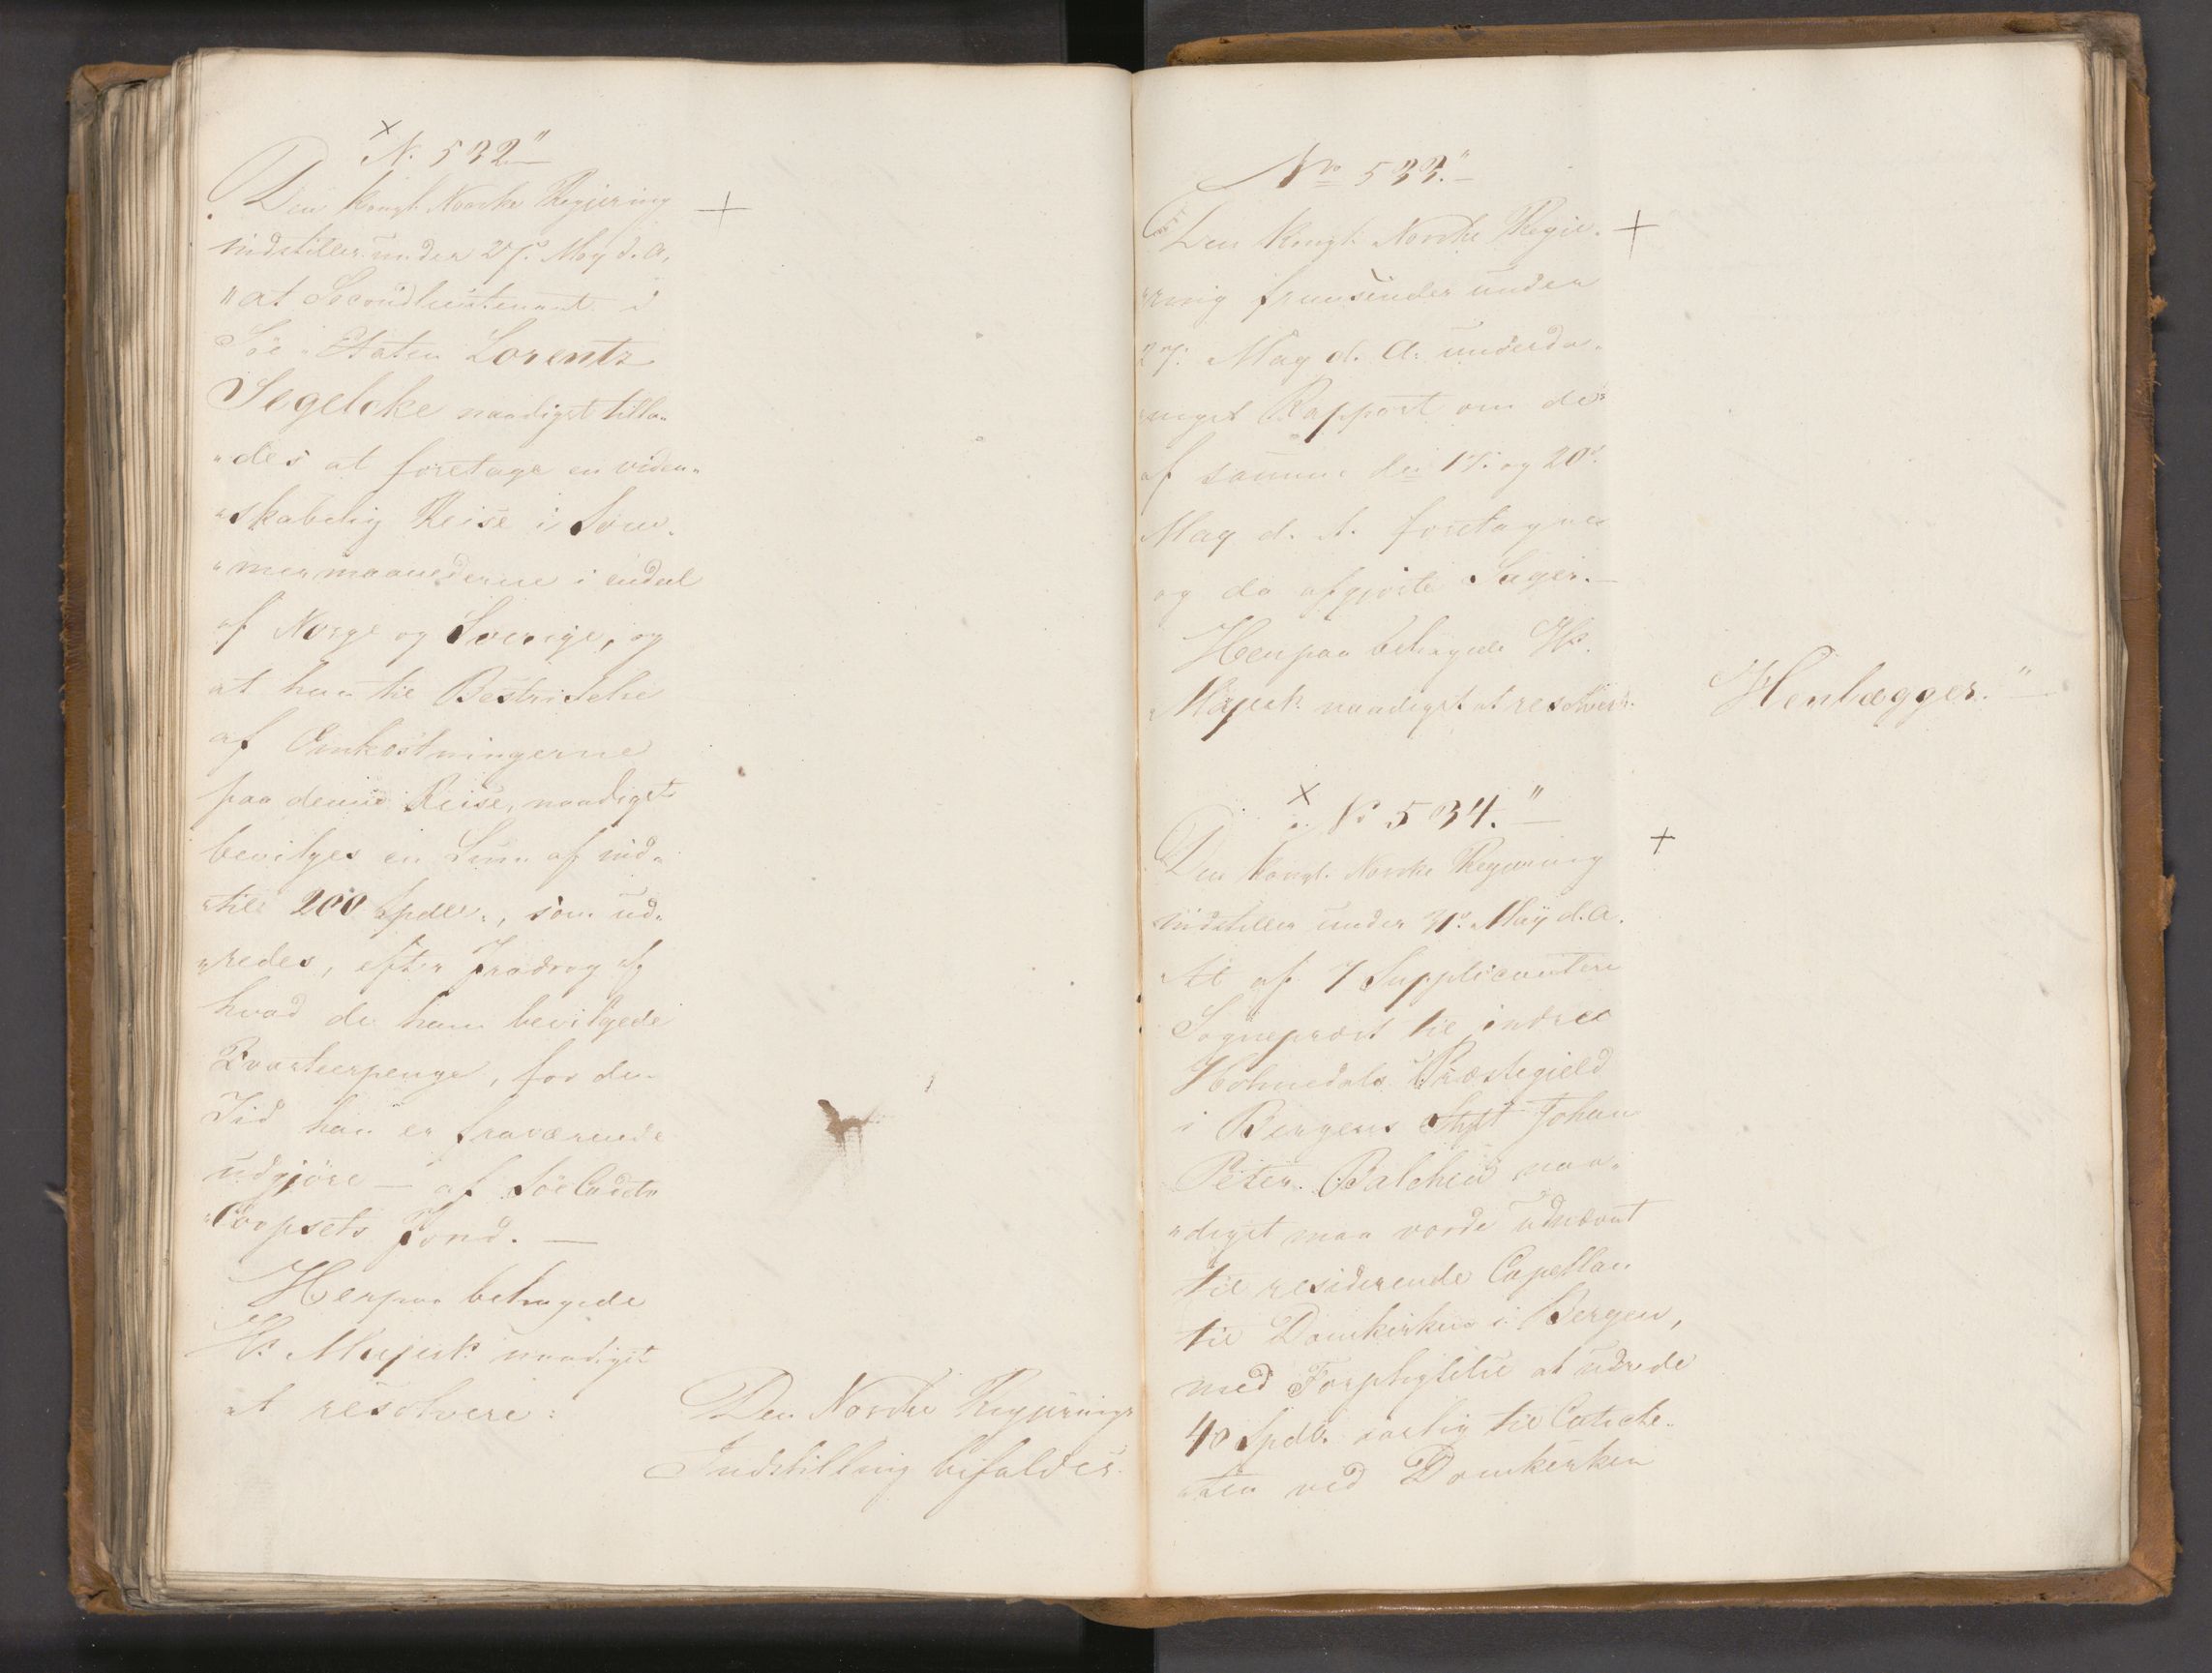 N. 532"
Den kongl. Norske Regjering
indstiller under 27. May d. A.
"at Secondlieutenant i
Söe-Etaten Lorentz
Segelcke naadigst tilla-
"des at foretage en viden-
"skabelig Reise i Som-
"mermaanederne i endeel
af Norge og Sverige, og
at ham til Bestridelse
af Omkostningerne
paa denne Reise, naadigst
bevilges en Sum af ind-
"til 200 Spdlr., som ud-
"redes, efter Fradrag af
hvad de ham bevilgede
Qvarteerpenge, for den
Tid han er fraværende
udgjöre – af SöeCadet-
"Corpsets Fond. –
Herpaa behagede
Hs. Majest. naadigst
at resolvere:
Den Norske Regjerings
Indstilling bifaldes.
No 533."
Den Kongl. Norske Regje-
"ring fremsender under
27. May d. A. underda-
"nigst Rapport om de
af samme den 17. og 20.
May d. A. foretagne
og da afgjorte Sager. –
Herpaa behagede Hs.
Majest. naadigst at resolvere.
Henlægges."
No 534."
Den kongl. Norske Regjering
indstiller under 31. May d. A.
At af 7 Supplicantere
Sognepræst til indre
Holmedals Præstegield
i Bergens Stift Johan
Peter Balchen naa-
"digst maa vorde udnævnt
til residerende Capellan
til Domkirken i Bergen,
med Forpligtelse at udrede
40 Spdlr. aarlig til Catiche-
"ten ved Domkirken